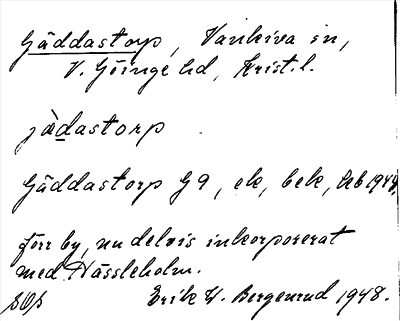 Gäddastorp, Vankiva sn,
V. Göinge hd, Krist. l.
jädastorp
Gäddastorp G 9, ek, bek, Eb 1944,
förr by, nu delvis inkorporerat
med Hässleholm.
Erik W. Bergenrud 1948.